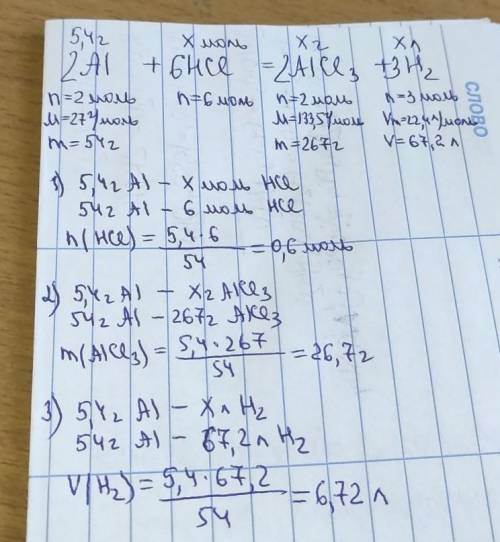 5,4г х моль хг хл
2Al + 6HCl = 2AlCl₃ + 3H₂
n=2моль n=6моль n=2моль n=3моль
M=27г/моль M=133,5г/моль Vn=22,4л/моль
m=54г m=267г V=67,2л
1) 5,4г Al – х моль HCl
54г Al – 6 моль HCl
n(HCl) = 5,4·6/54 = 0,6 моль
2) 5,4г Al – хг AlCl₃
54г Al – 267г AlCl₃
m(AlCl₃) = 5,4·267/54 = 26,7г
3) 5,4г Al – хл H₂
54г Al – 67,2л H₂
V(H₂) = 5,4·67,2/54 = 6,72л
СЛОВО